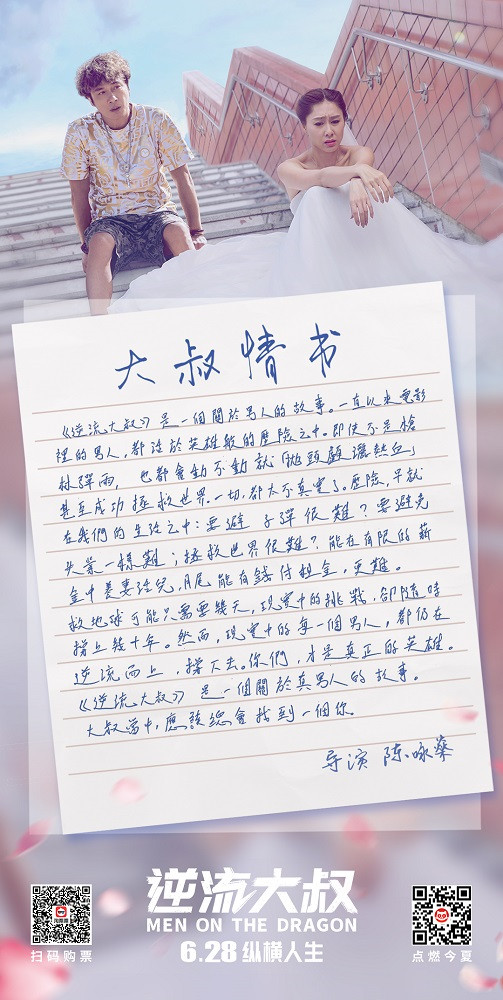 大叔情书
《逆流大叔》是一個關於男人的故事。一直以來電影
裡的男人，都活於英雄般的歷險之中。即使不是槍
林彈雨，也都會動不動就「拋頭顱灑熱血」
甚至成功拯救世界。一切，都太不真實了。歷險，早就
在我們的生活之中：要避子彈很難？要避免
失業一樣難；拯救世界很難？能在有限的薪
金中養妻活兒，月尾能有錢付租金，更難。
救地球可能只需要幾天，現實中的挑戰，卻隨時
撐上幾十年。然而，現實中的每一個男人，都仍在
逆流而上，撐下去。你們，才是真正的英雄。
《逆流大叔》是一個關於真男人的故事。
大叔當中，應該總會找到一個你。
导演 陈咏燊
逆流大叔
MEN ON THE DRAGON
6.28 纵横人生
扫码购票
点燃今夏